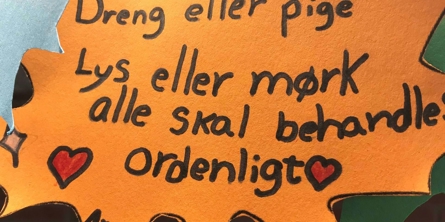 Dreng eller pige
Lys eller mørk
alle skal behandles
Ordenligt